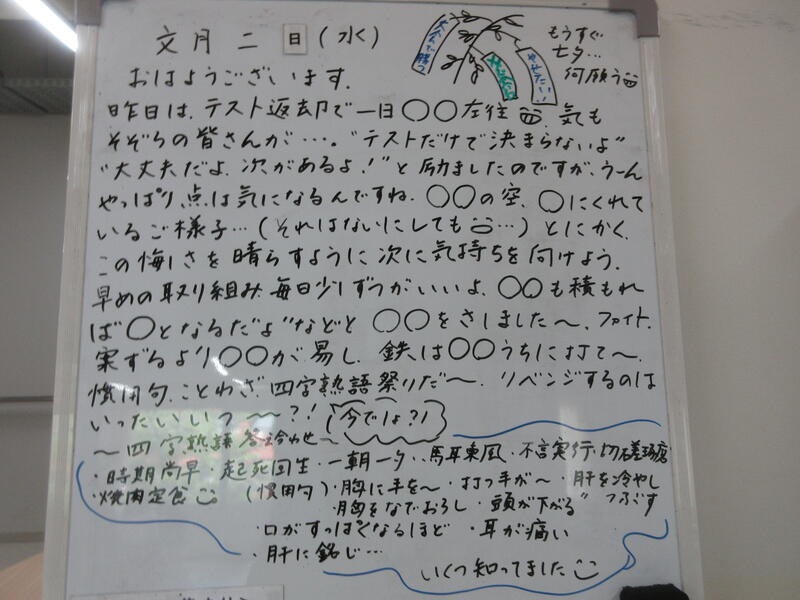 文月二日(水)
もうすぐ
七夕…
何願う
おはようございます.
昨日は、テスト返却で一日〇〇左往 気も
そぞろの皆さんが…。"テストだけで決まらないよ"
"大丈夫だよ、次があるよ!"と励ましたのですが、うーん
やっぱり、点は気になるんですね。〇〇の空、〇にくれて
いるご様子…(それはないにしても…)とにかく、
この悔しさを晴らすように次に気持ちを向けよう。
早めの取り組み、毎日少しずつがいいよ、〇〇も積もれ
ば〇となるだよ"などと〇〇をさしました～、ファイト、
案ずるより〇〇が易し、鉄は〇〇うちに打て～、
慣用句、ことわざ、四字熟語祭りだ～、リベンジするのは
いったいいつ～～?!(今でしょ?!)
～四字熟語答え合わせ～
・時期尚早・起死回生・一朝一夕・馬耳東風・不言実行・切磋琢磨
・焼肉定食 (慣用句)・胸に手を～・打つ手が～・肝を冷やし
つぶす
・胸をなでおろし・頭が下がる
・口がすっぱくなるほど・耳が痛い
・肝に銘じ…
いくつ知ってました